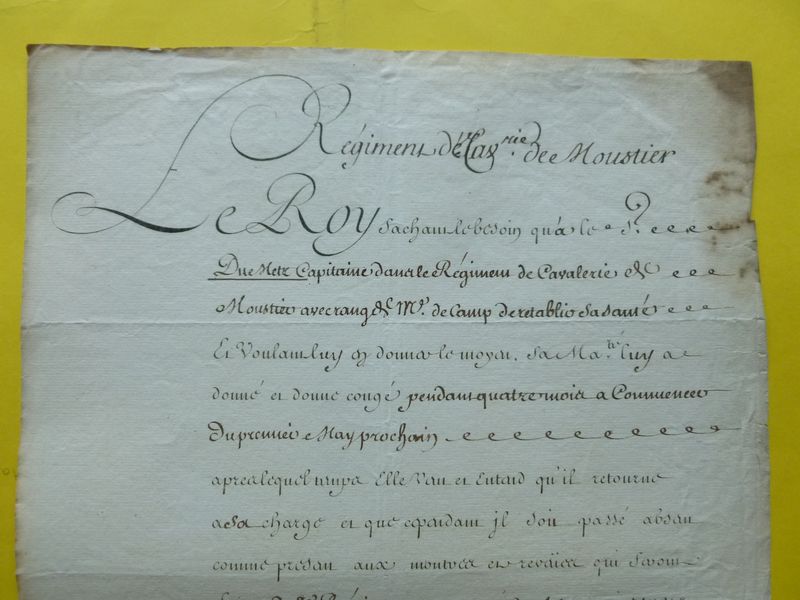 Régiment de Cav.rie de Moustier
Le Roy sachant le besoin qu'a le S.r
Du Metz Capitaine dans le Régiment de Cavalerie de
Moustier avec rang de M.e de Camp de retablir sa santé
Et Voulant luy en donner le moyen, Sa Ma.té luy a
donné et donne congé pendant quatre mois a Commencer
Du premier May prochain
apres lequel temps Elle Veut et Entend qu'il retourne
a sa charge et que cependant il soit passé absent
comme present aux montres et reveües qui seront